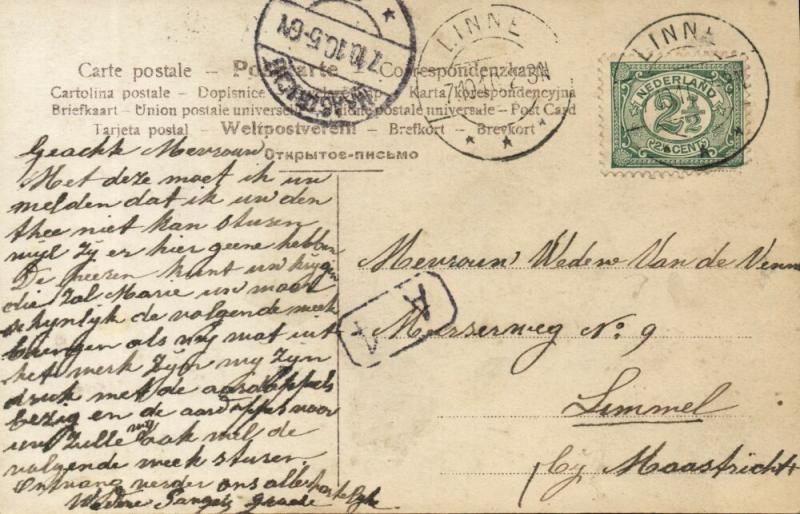 Carte postale – Postkarte – Correspondenzkarte
Cartolina postale – Dopisnice – Karta korespondencyjna
Briefkaart – Union postale universelle – Unione postale universale – Post Card
Tarjeta postal – Weltpostverein – Brefkort – Brevkort
Открытое-письмо
LINNE
LINNE
MAASTRICHT
7.10.10.5-6N
NEDERLAND
2½
2½ CENT
Geachte Mevrouw
Met deze moet ik uw
melden dat ik uw den
thee niet kan sturen
wijl zij er hier geene hebben
De peeren kunt uw krijgen
die zal Marie uw waar
schynlyk de volgende week
brengen als wij wat uit
het werk zijn wij zijn
druk met de aardappels
bezig en de aardappes voor
uw zulle wij ook met de
volgende week sturen
Ontvang verder ons aller hartelyk
Wedewe Geraede
Mevrouw Wedew Van de Venne
Meerserweg No: 9
Limmel
by Maastricht
A
A